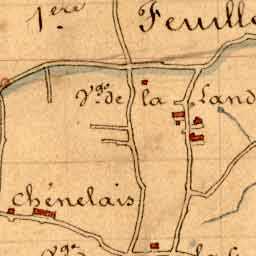 1ère Feuille
Vge de la Land
Chênelais
Vge